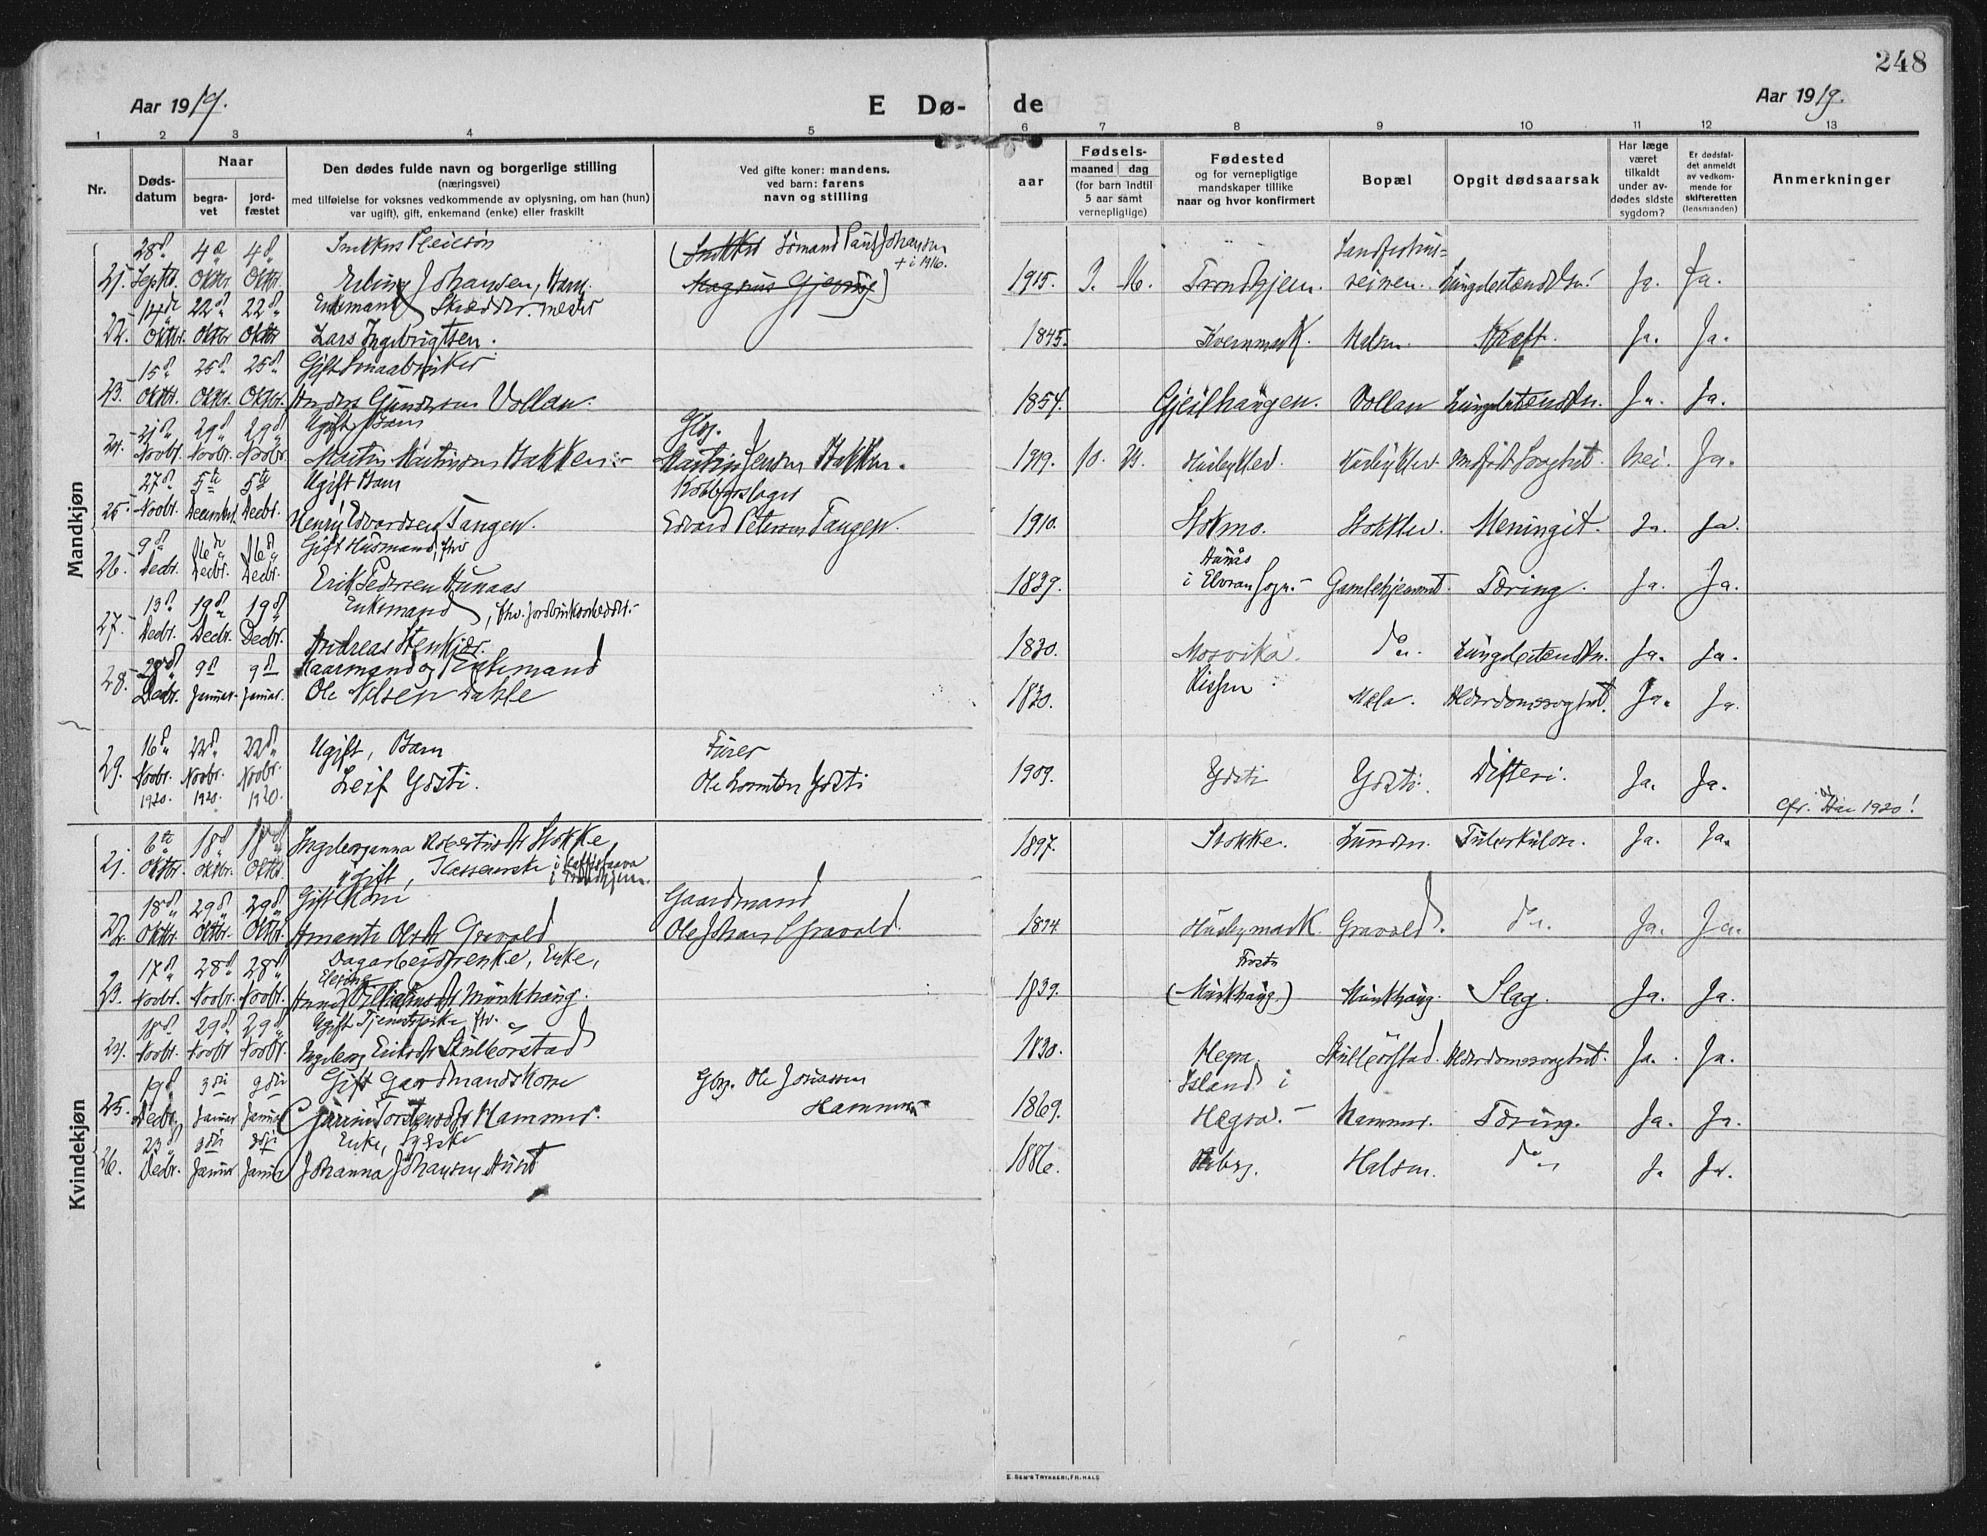 248
Aar 1919.
E Dø-
de
Aar 1919.
1 2 3 4 5 6 7 8 9 10 11 12 13
Nr.
Døds-
datum
Naar
begra-
vet
jord-
fæstet
Den dødes fulde navn og borgerlige stilling
(næringsvei)
med tilføielse for voksnes vedkommende av oplysning, om han (hun)
var ugift), gift, enkemand (enke) eller fraskilt
Ved gifte koner: mandens.
ved barn: farens
navn og stilling
aar
Fødsels-
maaned dag
(for barn indtil
5 aar samt
vernepligtige)
Fødested
og for vernepligtige
mandskaper tillike
naar og hvor konfirmert
Bopæl
Opgit dødsaarsak
Har læge
været
tilkaldt
under av-
dødes sidste
sygdom?
Er dødsfal-
det anmeldt
av vedkom-
mende for
skifteretten
(lensmanden)
Anmerkninger
Mandkjøn
21. 28d Septbr. 4de Oktbr. 4d Oktbr.
Erling Johansen, Barn.
Sømand Paul Johansen
+ i 1916.
Magnus Gjevinge)
1915. Trondhjem. Ja. Ja.
22. 14de Oktbr. 22d Oktbr 22d Oktbr
Enkemand Skræddermester
Lars Ingebrigtsen.
1845. Kvernmark. Halsen. Kræft. Ja. Ja.
23. 15d Oktbr. 25d Oktbr. 25d Oktbr.
Gift Smaabruker
Anders Gundersen Vollan.
1854. Gjeilhaugen. Vollan Lungebetændelsn. Ja. Ja.
24. Novbr. 29d Novbr. 29d Novbr.
Ugift Barn
Martin Martinsen Bakken
Gbr.
Martin Jensen Bakken.
1919. 10. Husbykleb. Husbykleb. Medfødt Svaghet. Nei. Ja.
25. 27d Novbr. 5te Decembr. 5te Decbr.
Ugift Barn
Henry Edvardsen Tangen.
Kobberslager
Edvard Petersen Tangen.
1910. Stokmo. Stokklev. Meningit. Ja. Ja.
26. 9d Decbr. 16de Decbr. 16d Decbr.
Gift Husmand, fhv
Erik Pedersen Hunaas
1839. i Elvran Sogn. Gamlehjemmet. Tæring. Ja. Ja.
27. 13d Decbr. 19d Decbr. 19d Decbr.
Enkemand, fhv. Jordbruksarbeider.
Andreas Stenkjær.
1830. Mosvika. do. Lungebetændelsn. Ja. Ja.
28. Decbr. 9d Januar. 9d Januar.
Kaarmand og Enkemand
Ole Nilsen Dahle
1830. Rissen. Mæla. Alderdomssvaghet. Ja. Ja.
29. 16d Novbr. 1920. 22d Novbr. 1920. 22d Novbr. 1920.
Ugift, Barn
Leif Ydsti.
Furer
Ole Ydsti
1909. Ydsti Ydsti. Difteri. Ja. Ja.
cfr. Aar 1920!
Kvindekjøn
21. 6te Oktbr. 18d Oktbr. 18d Oktbr.
Ingeborganna Stokke
Ugift, Kassererske i Kaffistuova
i Trondhjem.
1897. Stokke. Lunden. Tuberkulose. Ja. Ja.
22. 18d Oktbr. 29d Oktbr. 29d Oktbr.
Gift Kone
Amanta Olsdtr Gravald
Gaardmand
Ole Johan Gravald.
Husbymark. Gravald. do. Ja. Ja.
23. 17d Novbr. 28d Novbr. 28d Novbr.
Dagarbeiderenke, Enke,
Munkhaug.
1839. Frosta
(Munkhaug.) Munkhaug. Slag. Ja. Ja.
24. 18d Novbr. 29d Novbr 29d Novbr.
Ugift Tjenestepike fhv.
Ingeborg Eriksdtr Skulbørstad
1830. Hegra. Skulbørstad. Alderdomssvaghet. Ja. Ja.
25. 19d Decbr. 3die Januar 3die Januar
Gift Gaardmandskone
Gurina Torstensdtr Hammer.
Gbr. Ole Jonassen
Hammer
1869. Island i
Hegra. Hammer. Tæring. Ja. Ja.
26. 23d Decbr. 3die Januar 3die Januar
Enke, Syerske
Johanna Johansen Huset
1886. Halsen. do Ja Ja.
E. SEM'S TRYKKERI, FR.HALD